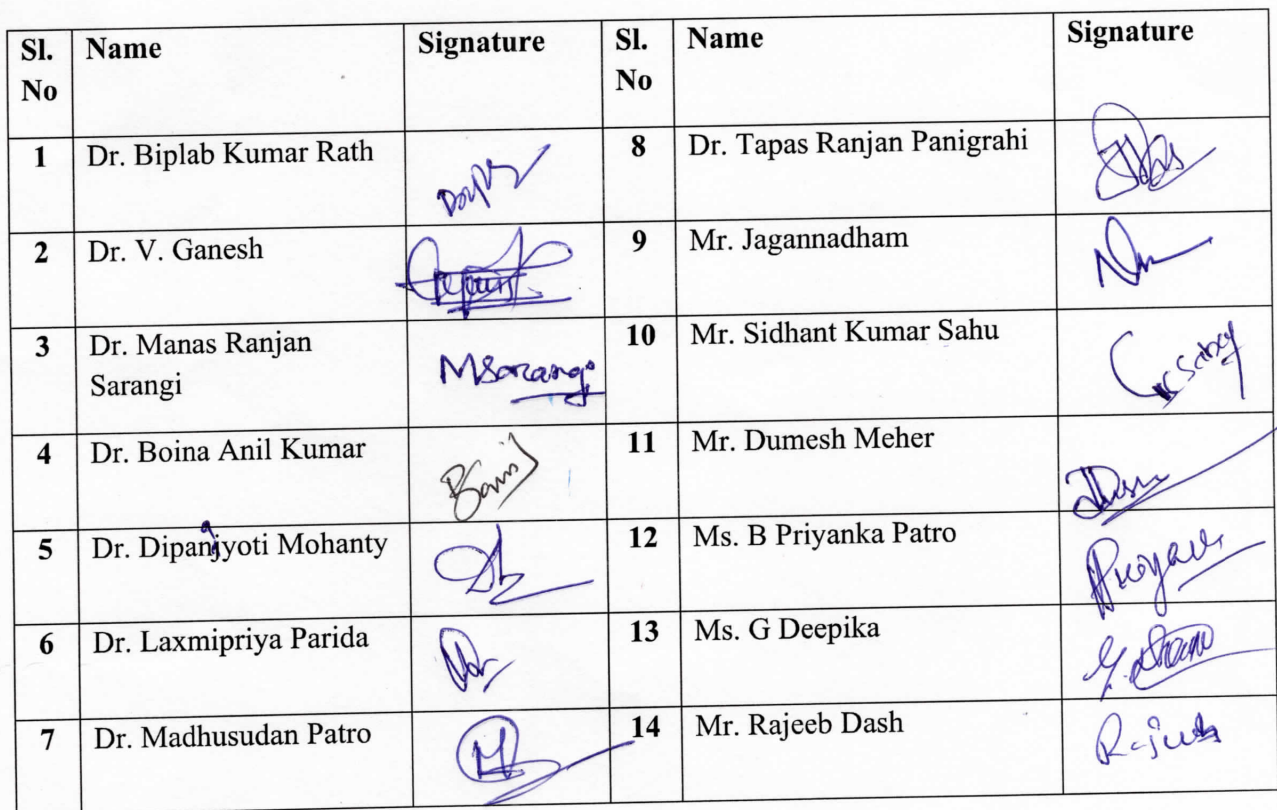 Sl. No Name Signature Sl. No Name Signature
1 Dr. Biplab Kumar Rath 8 Dr. Tapas Ranjan Panigrahi
2 Dr. V. Ganesh 9 Mr. Jagannadham
3 Dr. Manas Ranjan Sarangi MSarangi 10 Mr. Sidhant Kumar Sahu
4 Dr. Boina Anil Kumar 11 Mr. Dumesh Meher
5 Dr. Dipanjyoti Mohanty 12 Ms. B Priyanka Patro
6 Dr. Laxmipriya Parida 13 Ms. G Deepika
7 Dr. Madhusudan Patro 14 Mr. Rajeeb Dash